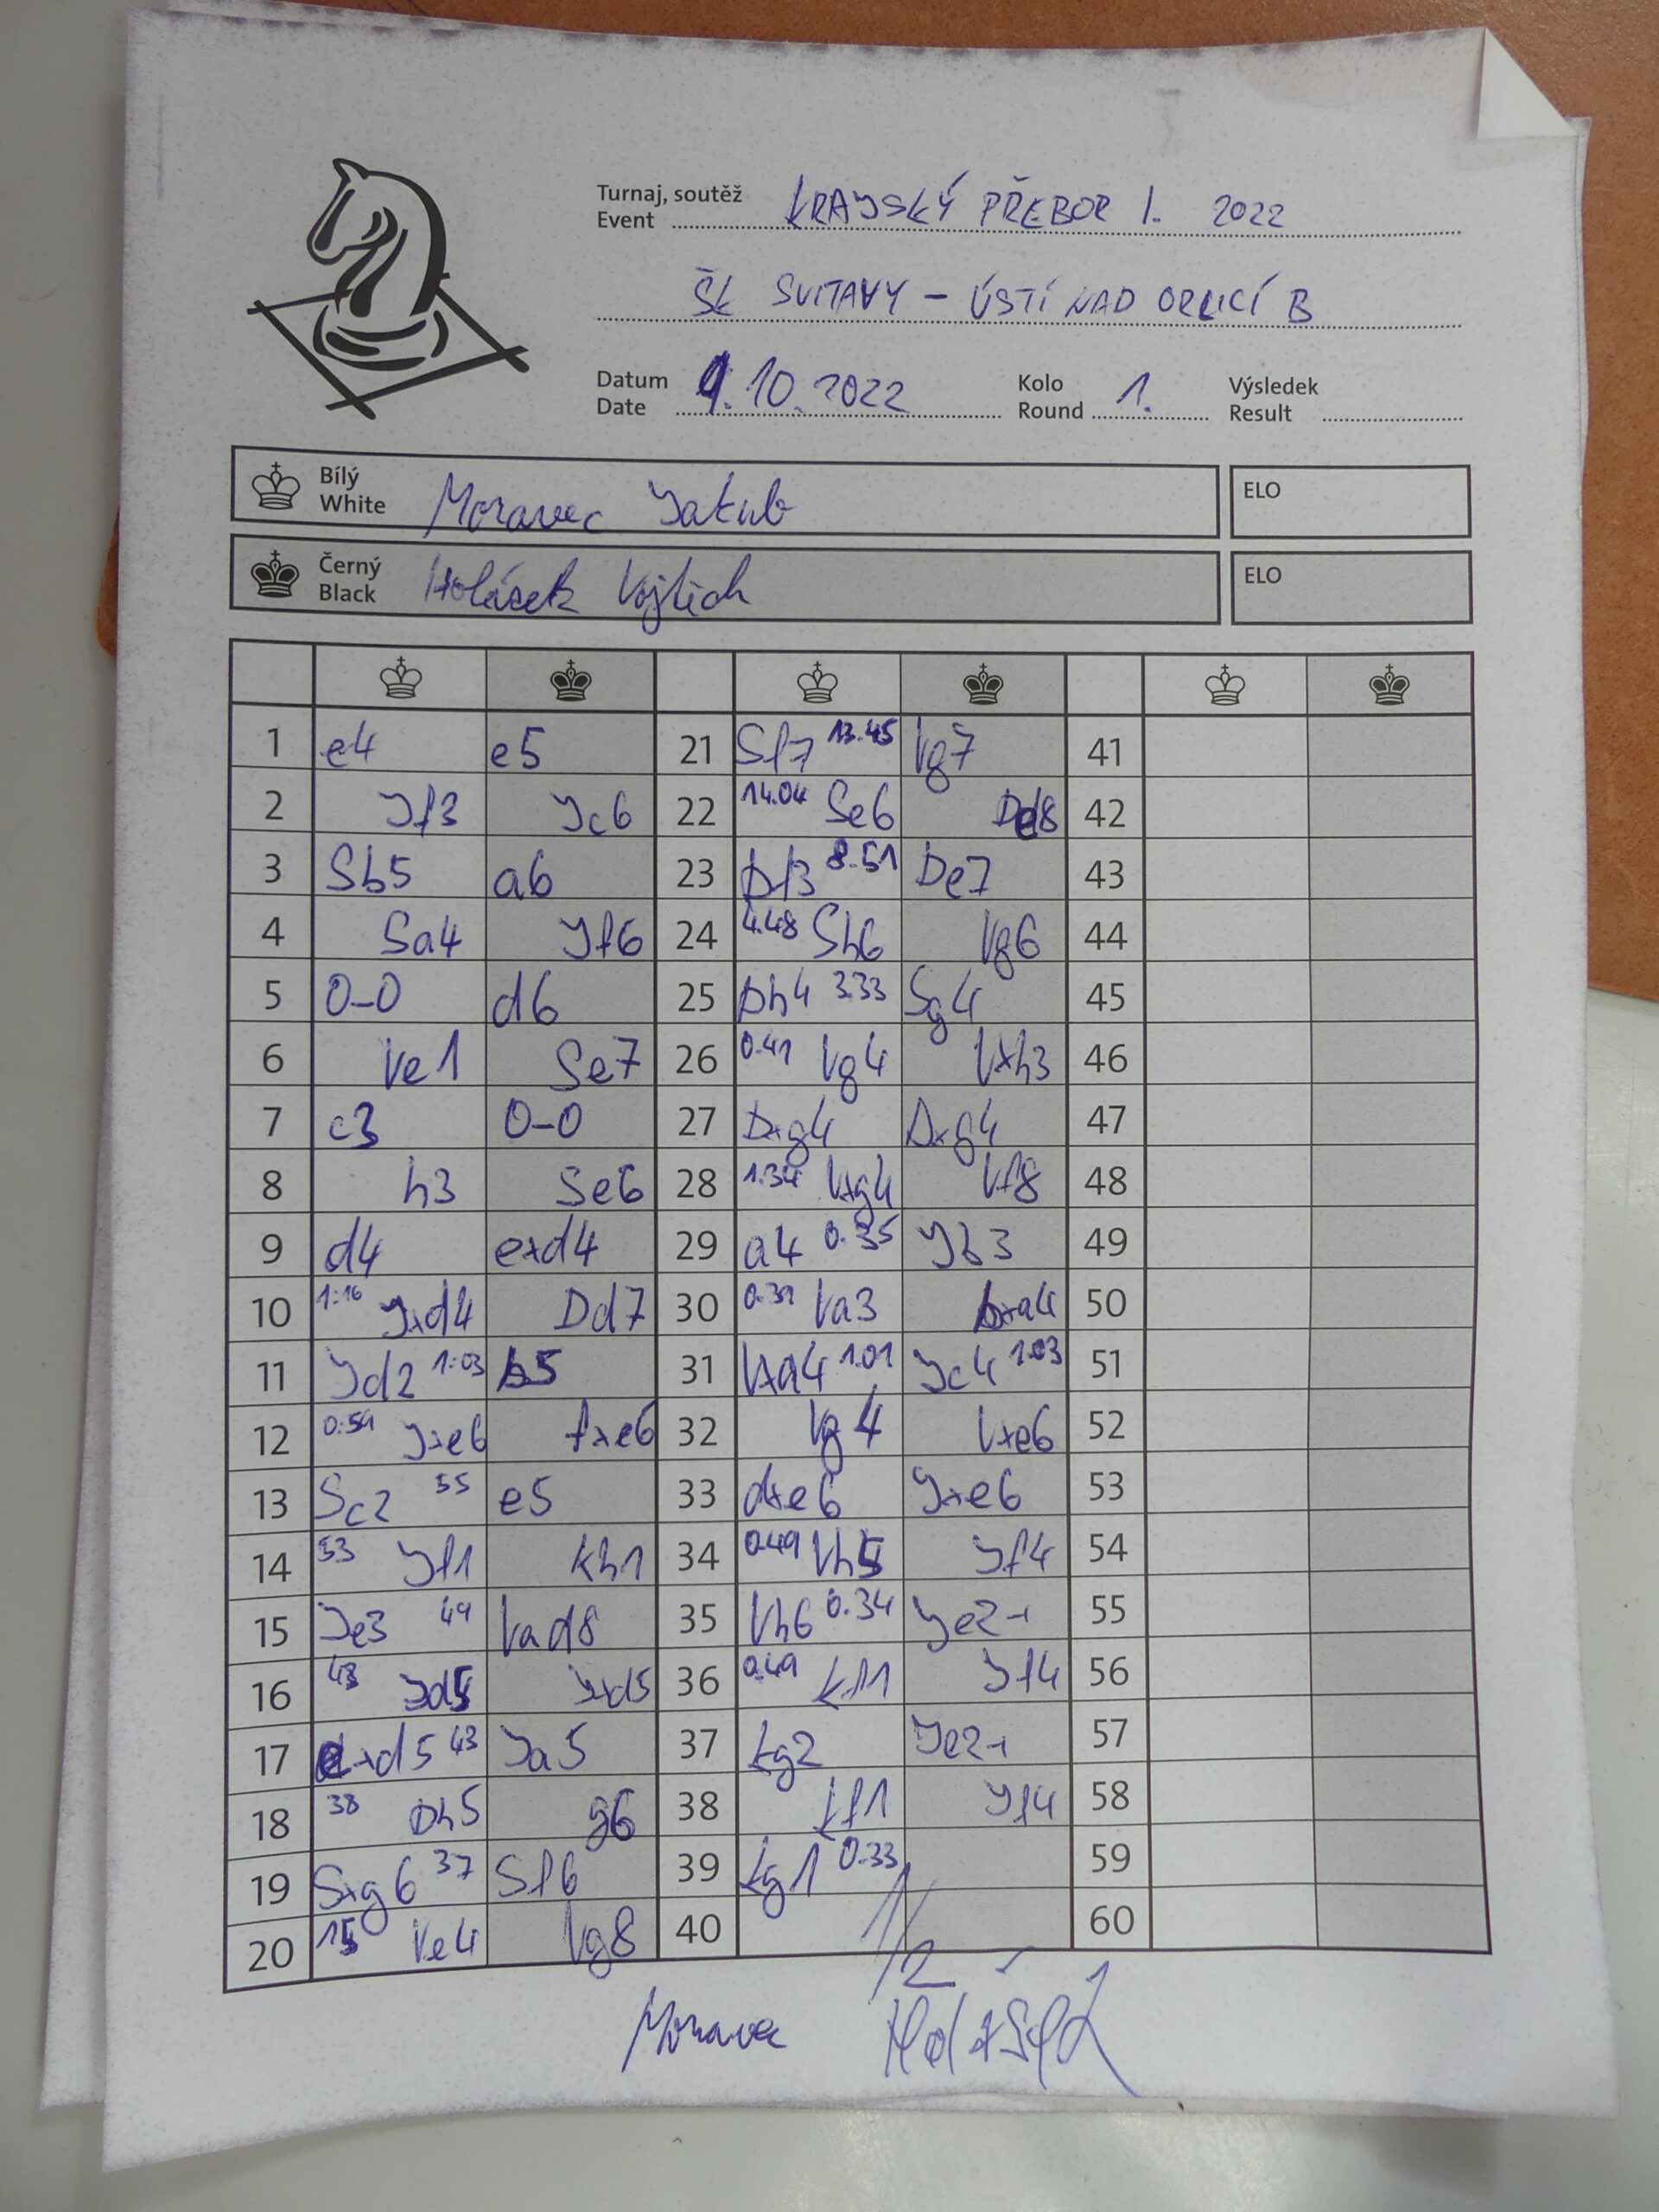 Turnaj, soutěž
Event KRAJSKÝ PŘEBOR I. 2022
ŠK SVITAVY - ÚSTÍ NAD ORLICÍ B
Datum Kolo Výsledek
Date 9.10.2022 Round 1. Result
Bílý
White Moravec Jakub ELO
Černý
Black Holásek Vojtěch ELO
1 e4 e5 21 Sf7 13.45 Vg7 41
2 Jf3 Jc6 22 14.04 Se6 Dd8 42
3 Sb5 a6 23 Df3 8.51 De7 43
4 Sa4 Jf6 24 4.48 Sh6 Vg6 44
5 0-0 d6 25 Dh4 3.33 Sg4 45
6 Ve1 Se7 26 0.41 Vg4 Vxh3 46
7 c3 0-0 27 Dxg4 Dxg4 47
8 h3 Se6 28 1.34 Vxg4 Vf8 48
9 d4 exd4 29 a4 0.35 Jb3 49
10 1:16 Jxd4 Dd7 30 0.39 Va3 bxa4 50
11 Jd2 1:03 b5 31 Vxa4 1.01 Jc4 1.03 51
12 0:59 Jxe6 fxe6 32 Vg4 Vxe6 52
13 Sc2 55 e5 33 dxe6 Jxe6 53
14 53 Jf1 Kh1 34 0.49 Vh5 Jf4 54
15 Je3 49 Vad8 35 Vh6 0.34 Je2+ 55
16 48 Jd5 Jxd5 36 0.49 Kf1 Jf4 56
17 exd5 43 Ja5 37 Kg2 Je2+ 57
18 38 Dh5 g6 38 Kf1 Jf4 58
19 Sxg6 37 Sf6 39 Kg1 0.33 59
20 15 Ve4 Vg8 40 60
1/2
Moravec Holásek